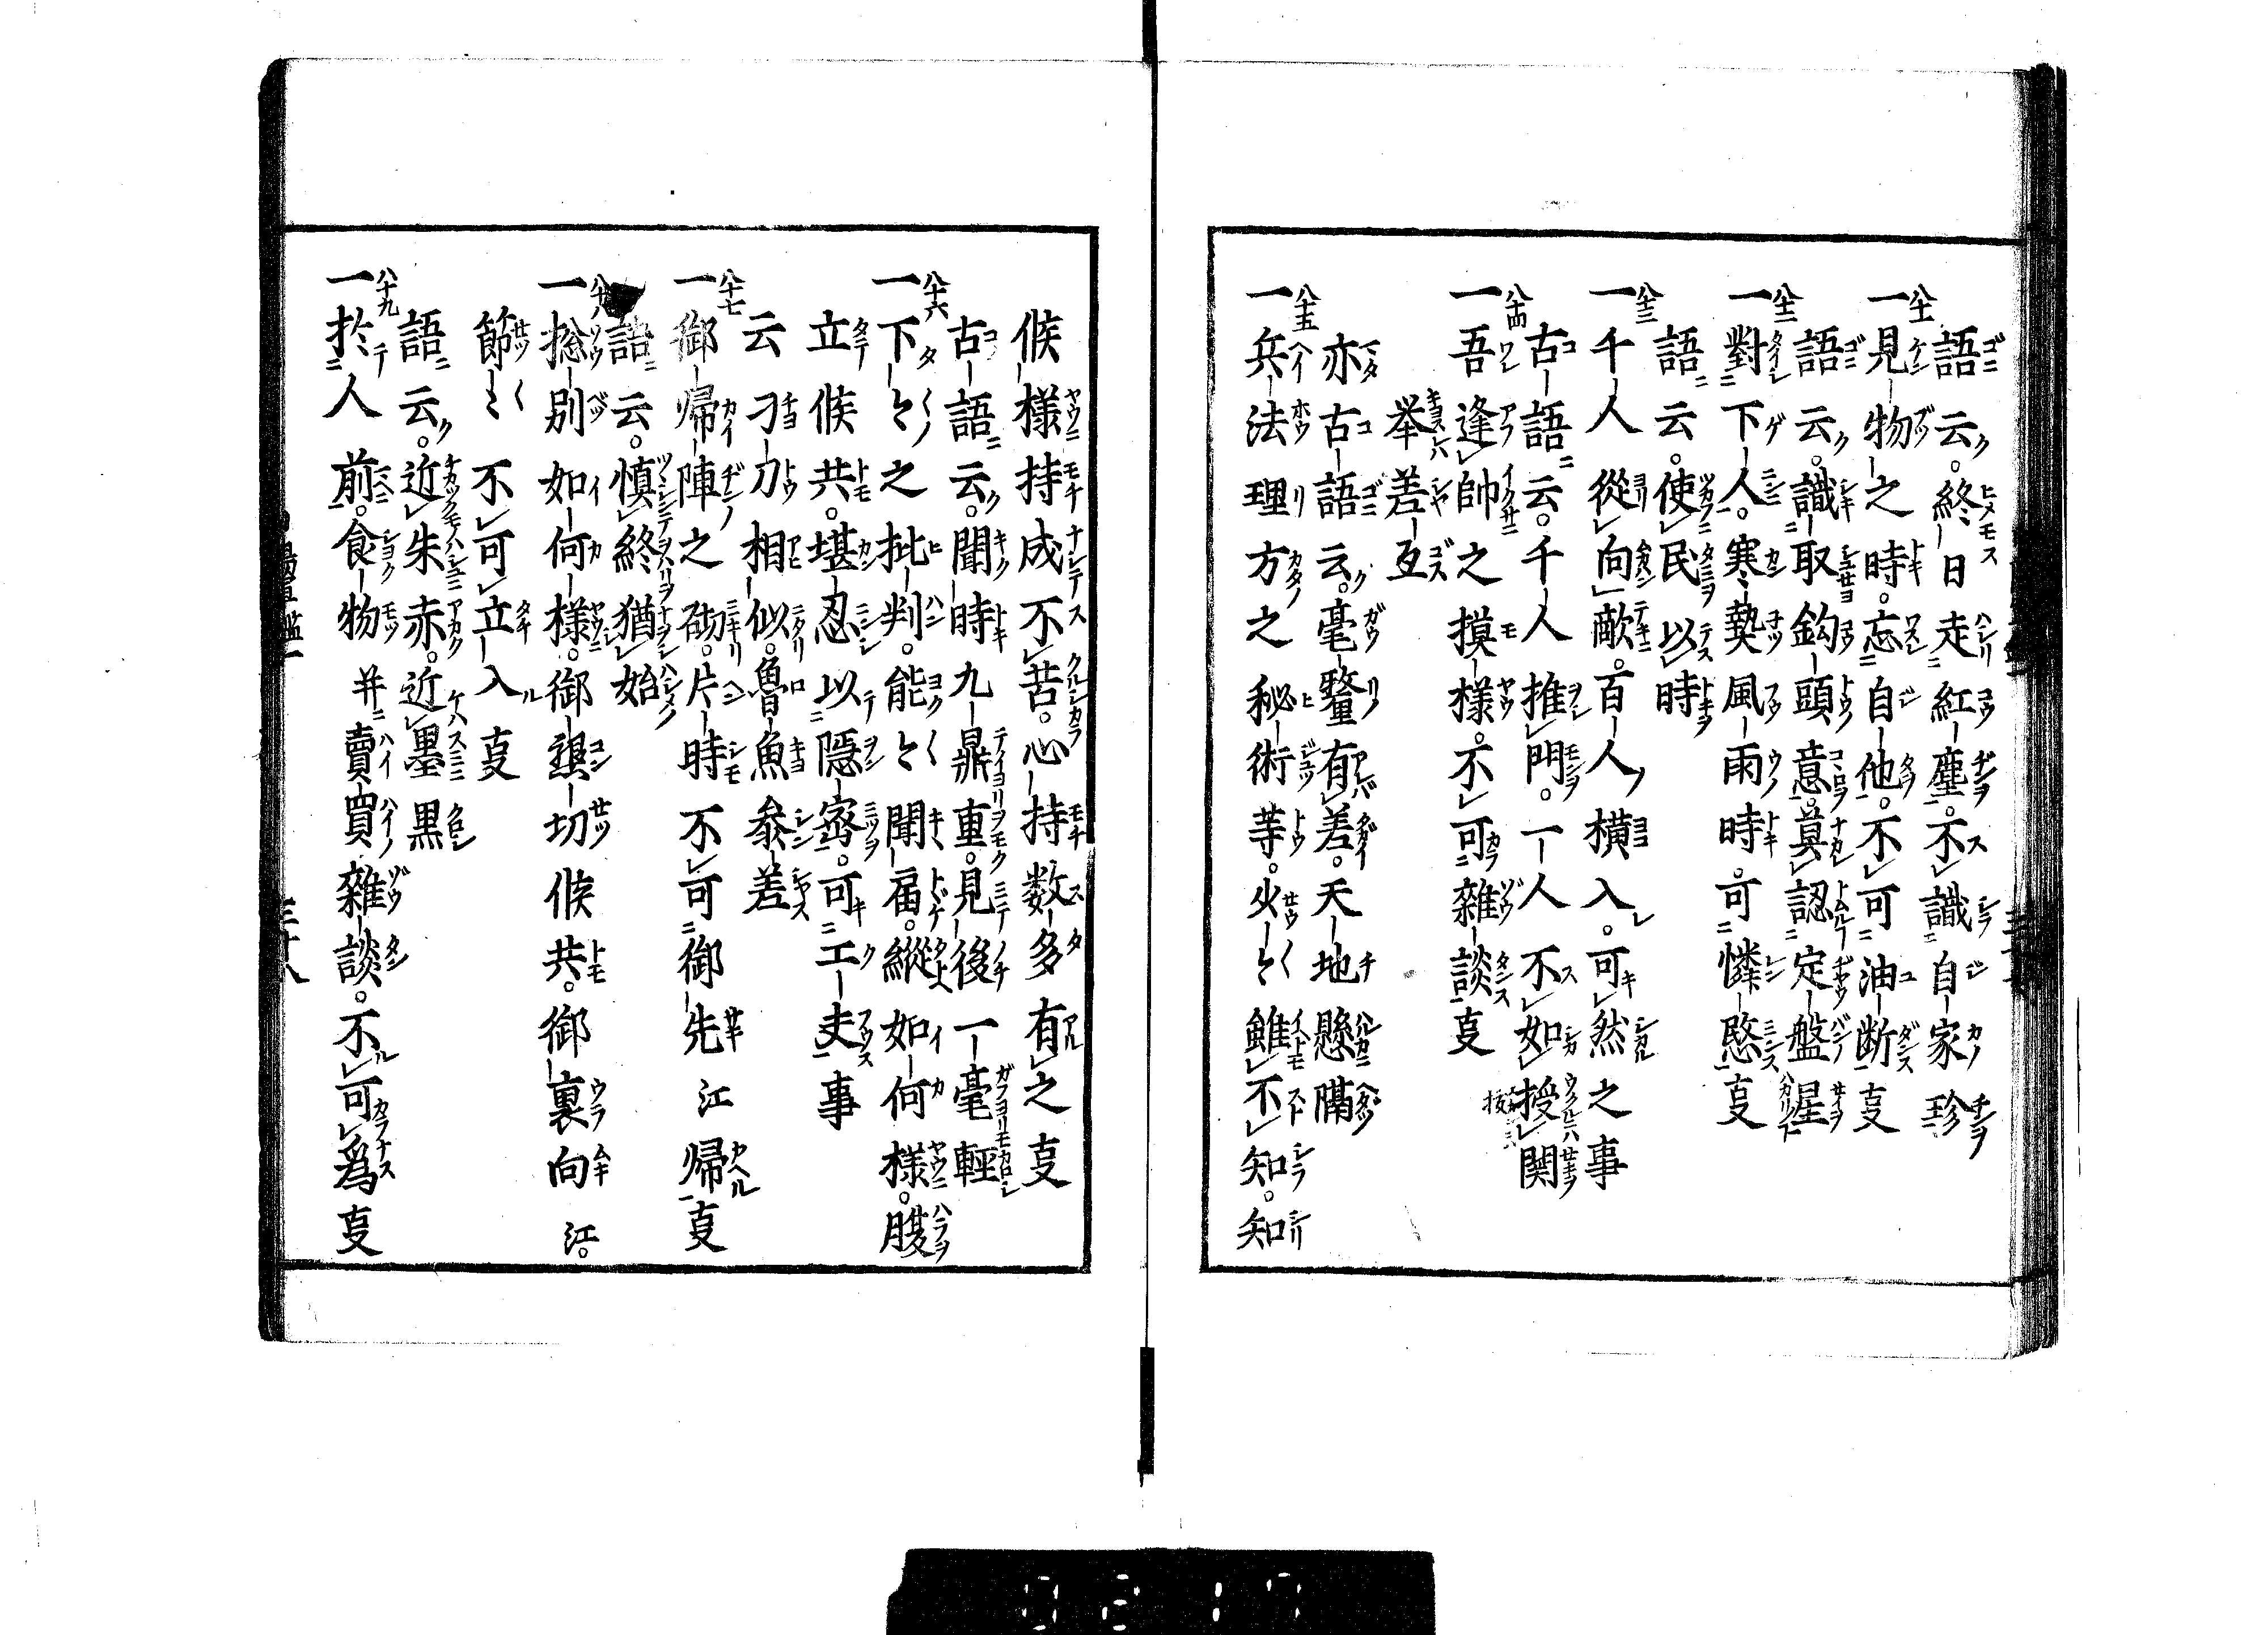 語云。終日走紅塵。不識自家珍
八十一 一見物之時。忘自他。不可油断叓
語云。識取鈎頭意。莫認定盤星
八十二 一對下人。寒𤍠風雨時。可憐愍叓
語云。使民以時
八十三 一千人從向敵。百人横入。可然之事
古語云。千人推門。一人不如授関
八十四 一吾逢帥之摸様。不可雜談叓
举差互
亦古語云。毫釐有差。天地懸隔
八十五 一兵法理方之秘術等。少々雖不知。知
候様持成不苦。心持数多有之叓
古語云。聞時九鼎重。見後一毫輕
八十六 一下々之批判。能々聞届。縱如何様。腹
立候共。堪忍以隠密。可工夫事
云刁刀相似。魯魚参差
八十七 一御帰陣之砌。片時不可御先江帰叓
語云。慎終猶始
八十八 一捴別如何様。御懇切候共。御裏向江。
節〻不可立入叓
語云。近朱赤。近墨黒
八十九 一扵人前。食物并賣買雜談。不可爲叓